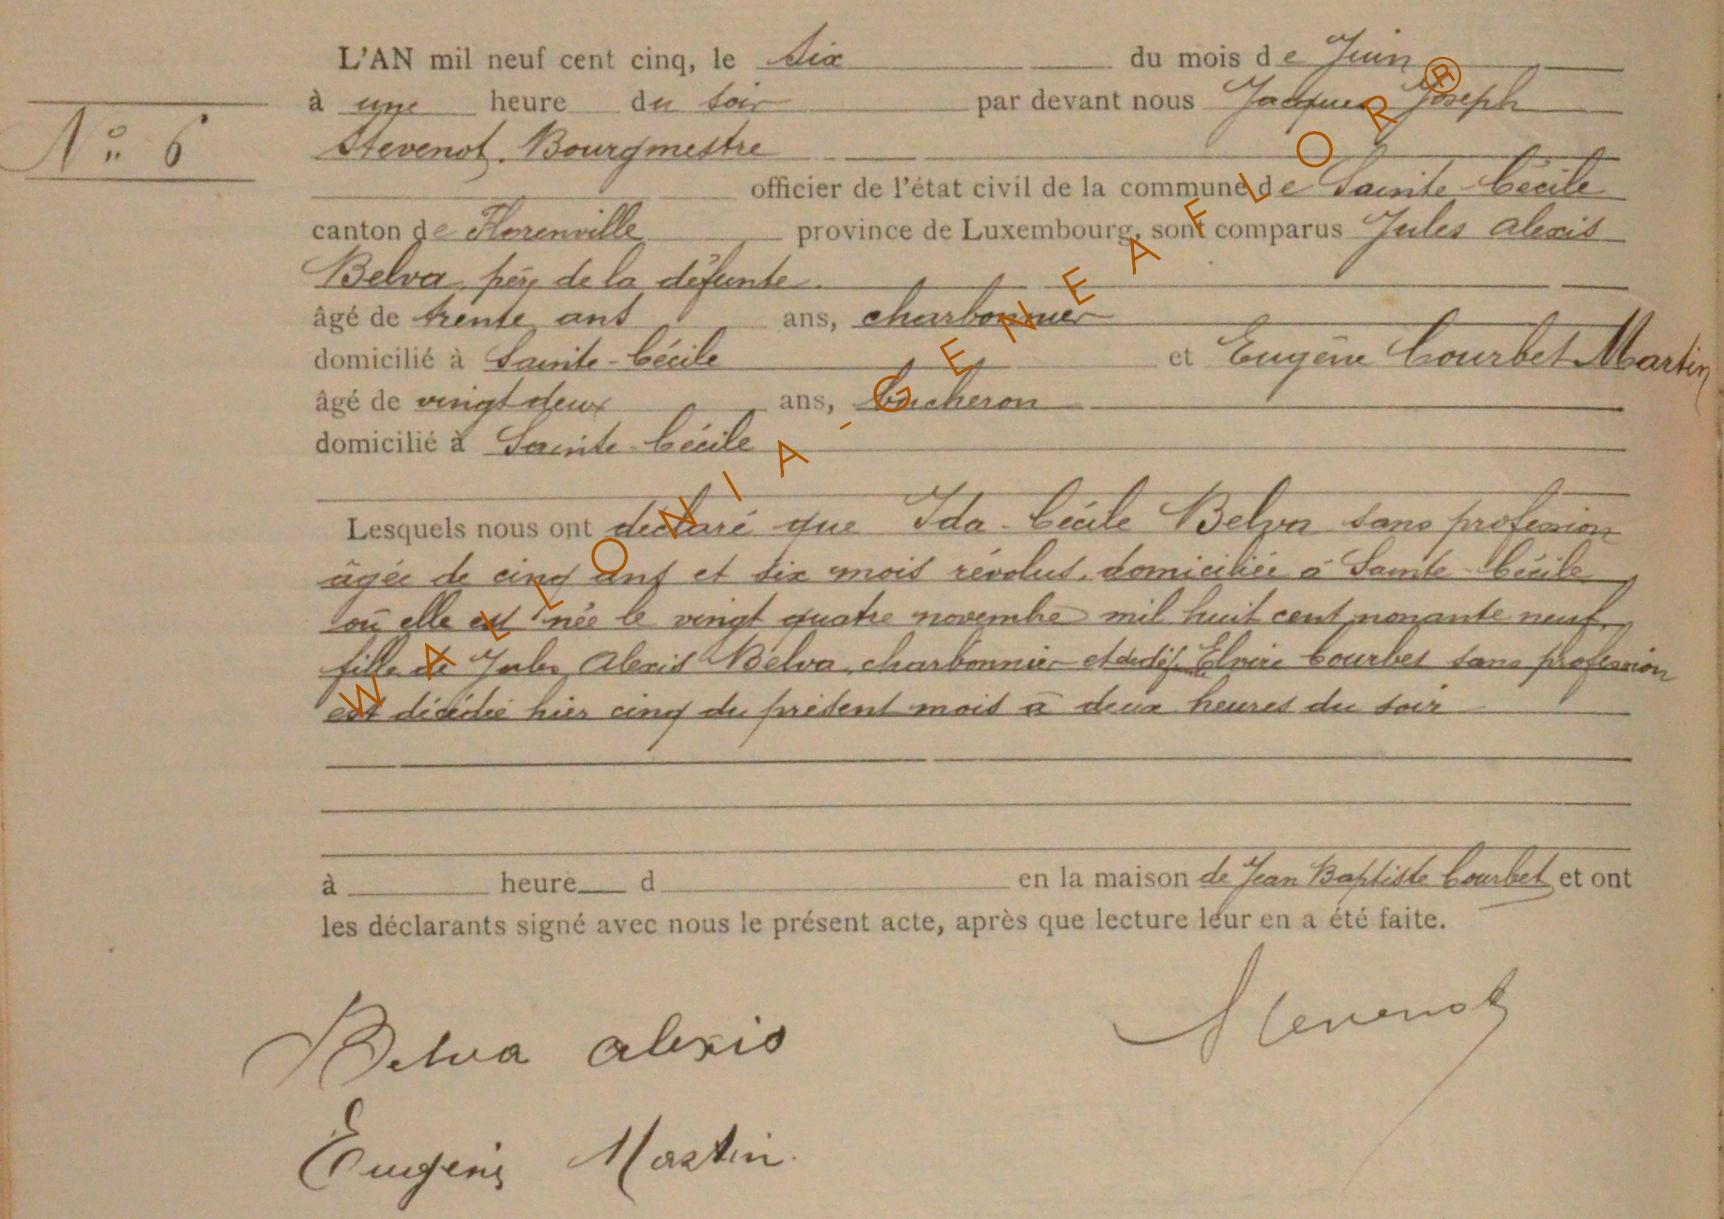 L'AN mil neuf cent cinq, le six du mois de Juin
à une heure du soir par devant nous Jacques Joseph
N° 6
Stevenot. Bourgmestre
officier de l'état civil de la commune de Sainte-Cécile
canton de Florenville province de Luxembourg, sont comparus Jules Alexis
Belva père de la défunte.
âgé de trente ans ans, charbonnier
domicilié à Sainte-Cécile et Eugène Courbet Martin
âgé de vingt deux ans, bucheron
domicilié à Sainte-Cécile
Lesquels nous ont declaré que Ida-Cécile Belva sans profession
âgée de cinq ans et six mois révolus, domiciliée à Sainte-Cécile
où elle est née le vingt quatre novembre mil huit cent nonante neuf,
fille de Jules Alexis Belva, charbonnier et de Elvire Courbet sans profession
est décédée hier cinq du présent mois à deux heures du soir
à heure d en la maison de Jean Baptiste Courbet et ont
les déclarants signé avec nous le présent acte, après que lecture leur en a été faite.
Stevenot
Belva alexis
Eugène Martin.
WALLONIA-GENEAFLOR®